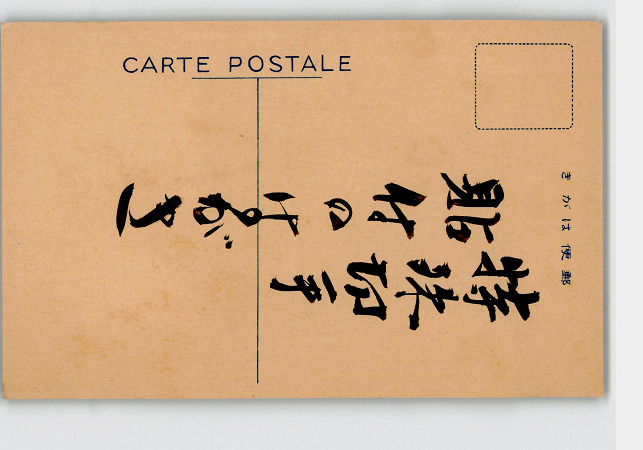 CARTE POSTALE
郵便はがき
特殊切手
貼付のはがき